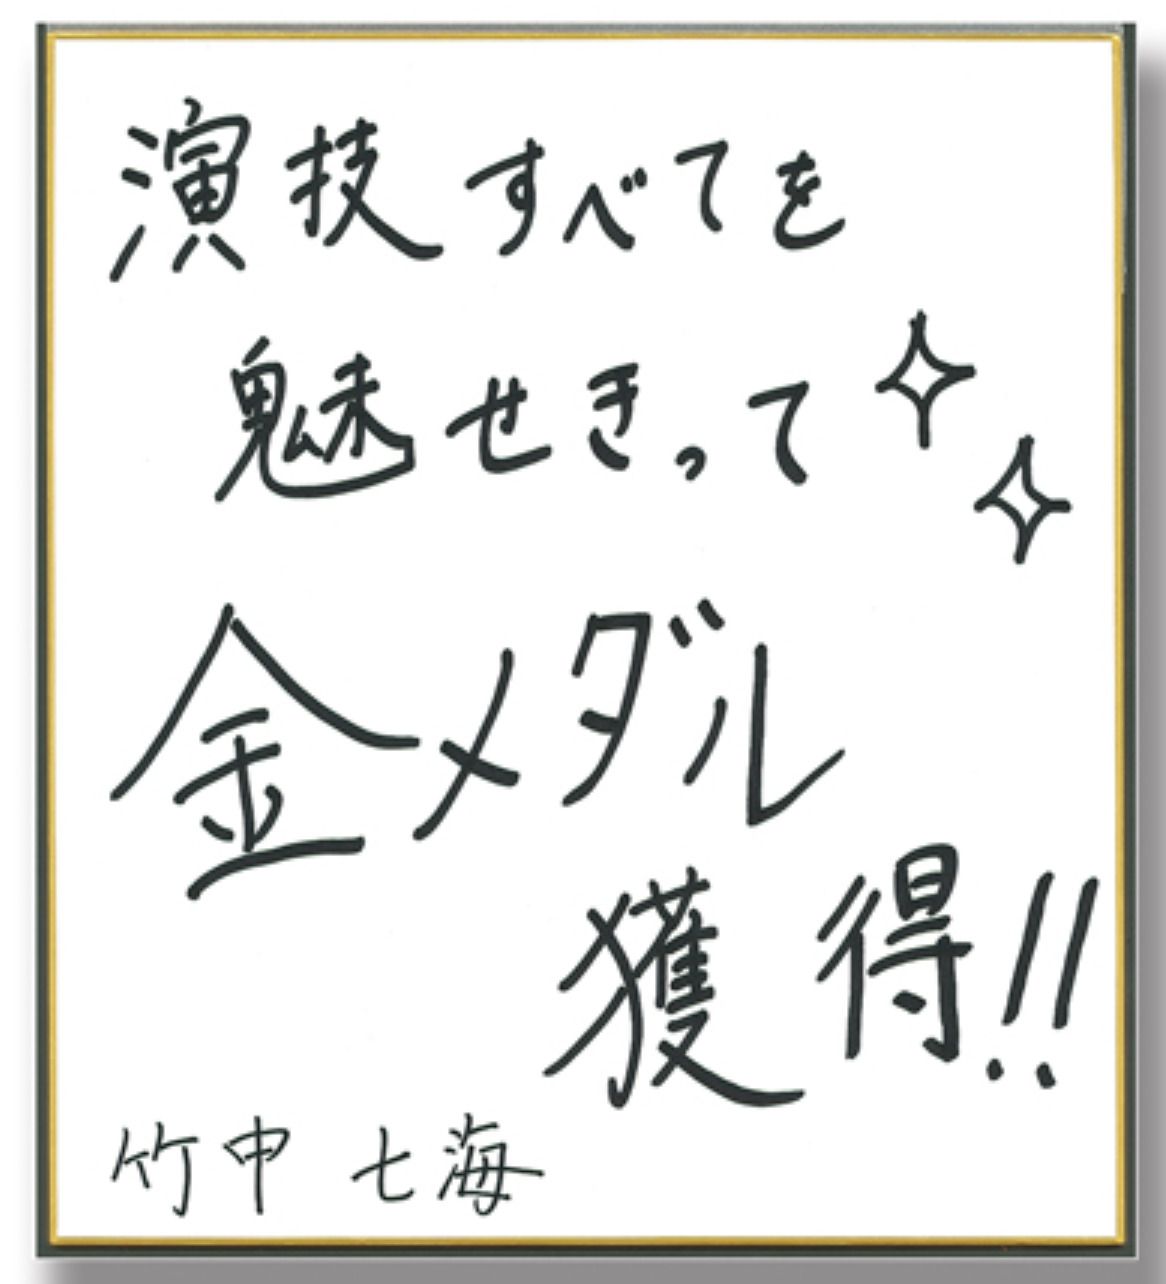 演技すべてを
魅せきって
金メダル
獲得!!
竹中 七海